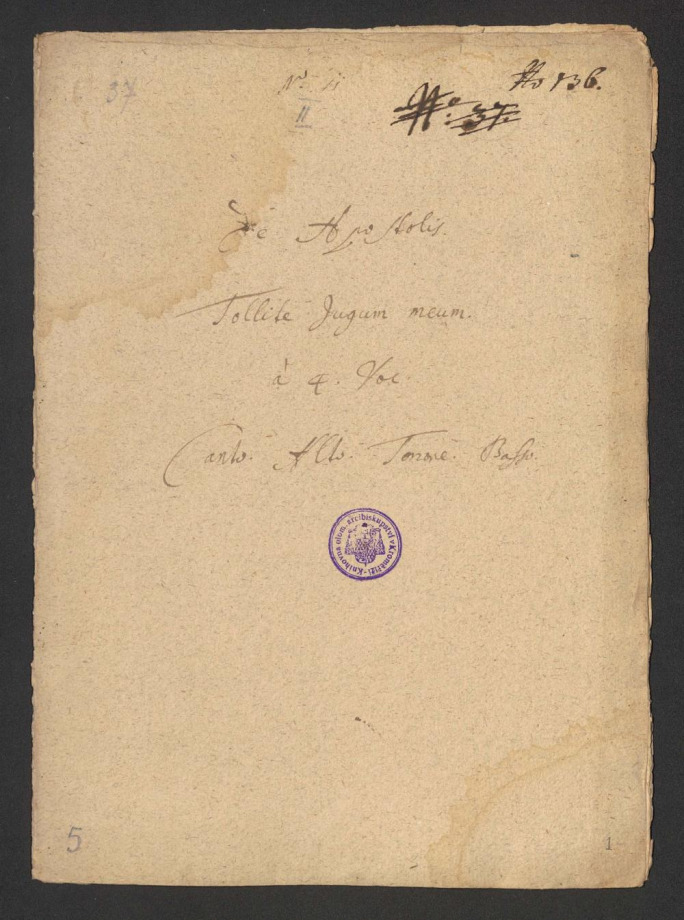 No 136.
37
No 4
No: 37.
II
De Apostolis.
Tollite Jugum meum.
à 4. Voc
Canto. Alto. Tenore. Basso.
Knihovna olom. arcibiskupství v Kroměříži
5
1